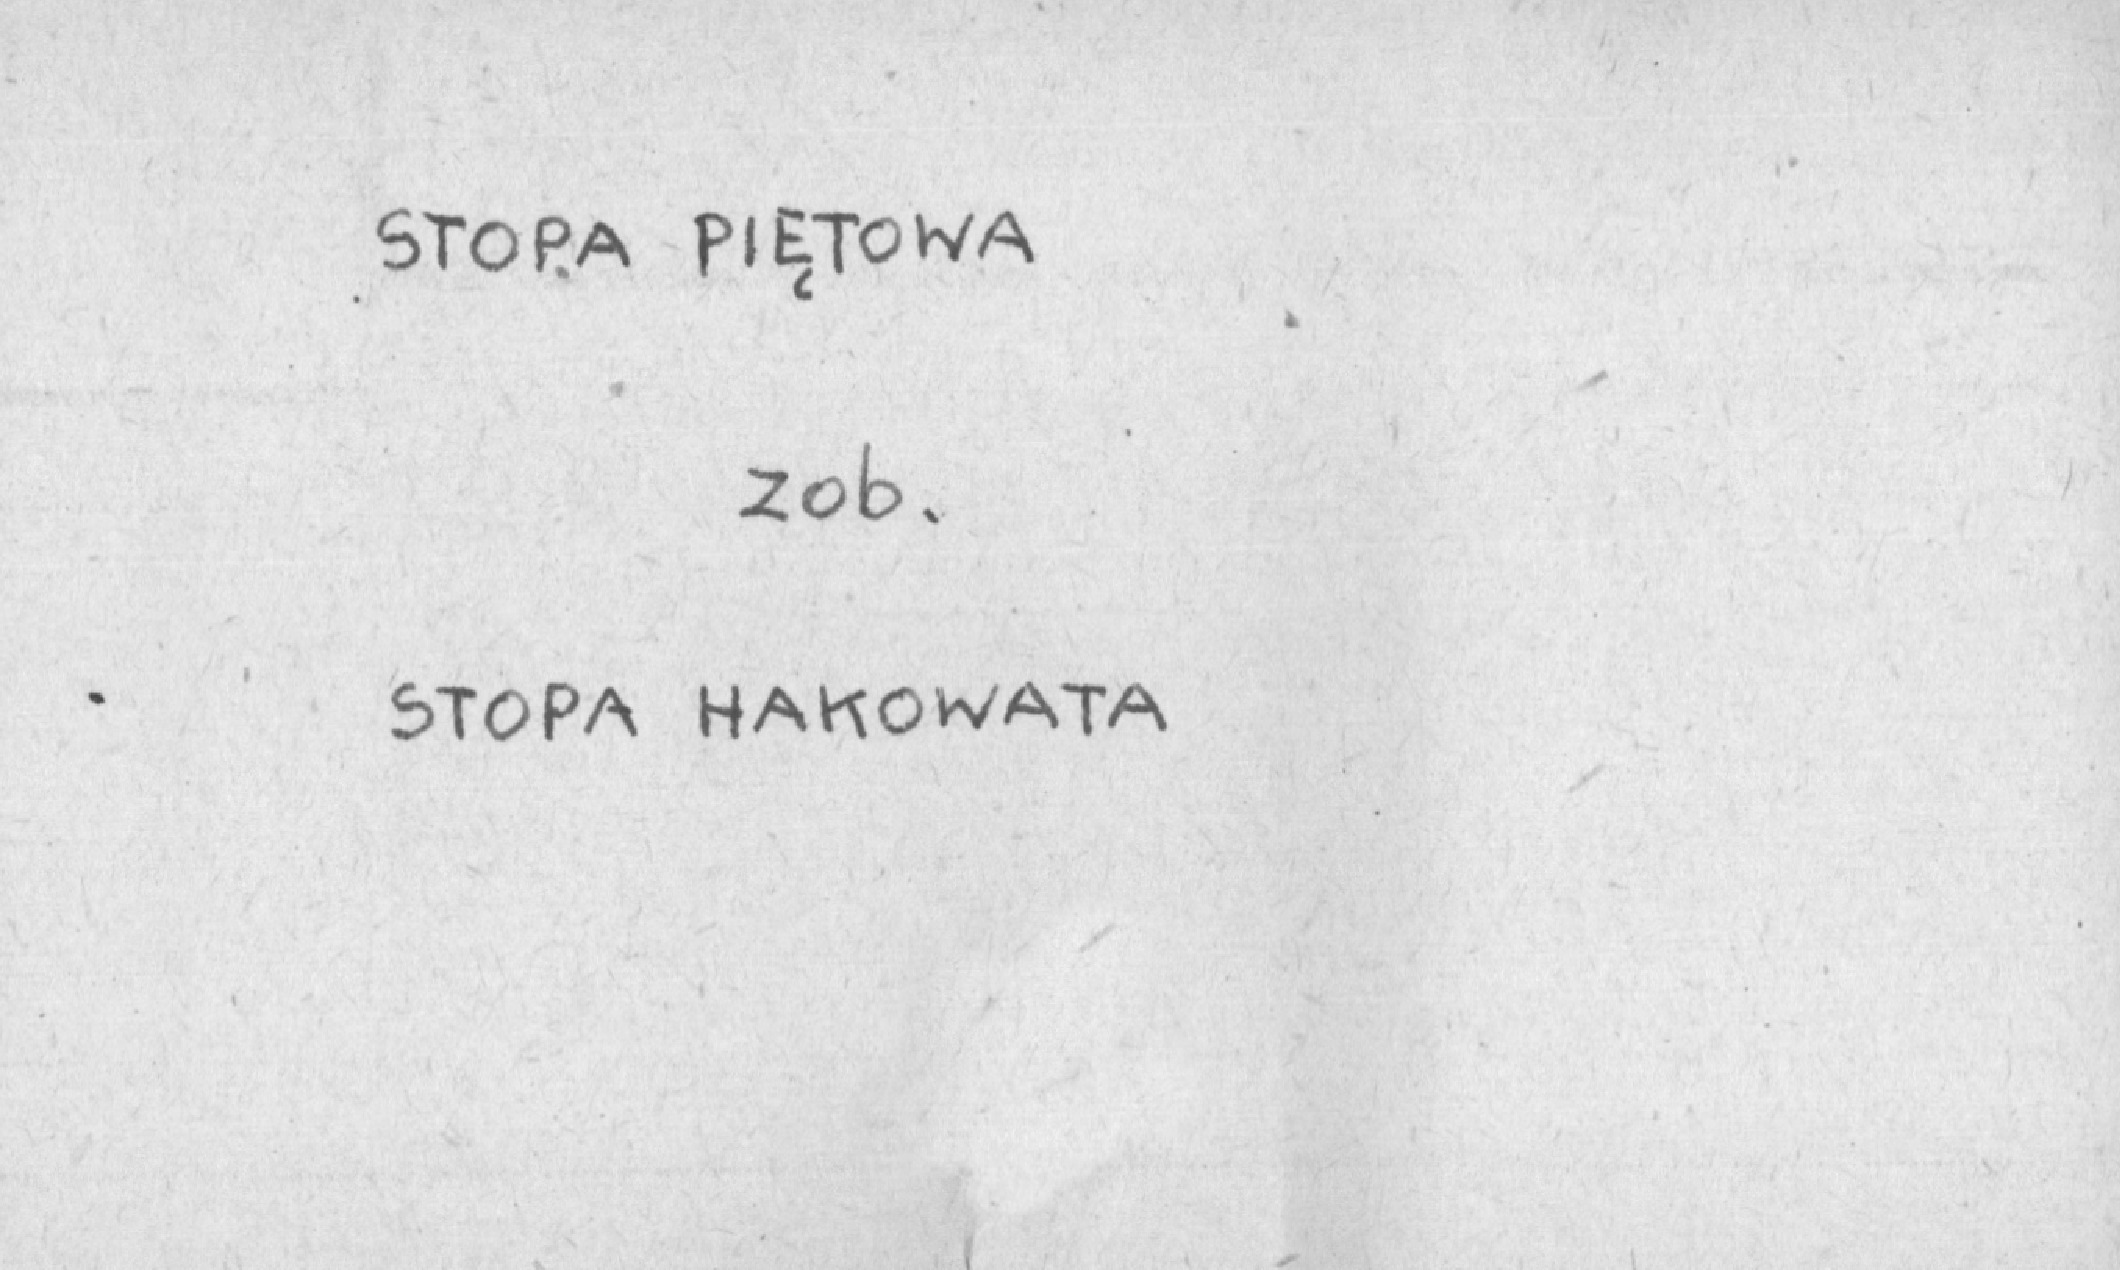 STOPA PIĘTOWA
zob.
STOPA HAKOWATA